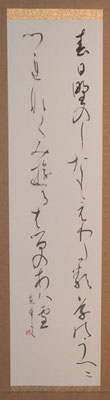 春日野のしたもえわたる草のうへに
つれなくみゆる春のあは雪